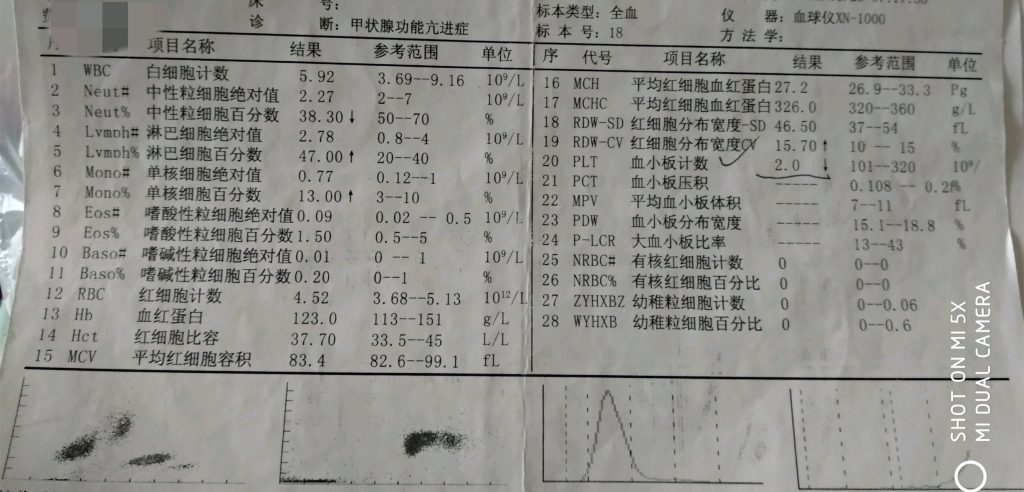 床 号:
诊 断: 甲状腺功能亢进症
标本类型: 全血
标 本 号: 18
仪 器: 血球仪XN-1000
方 法 学:
项目名称 结果 参考范围 单位
1 WBC 白细胞计数 5.92 3.69--9.16 10⁹/L
2 Neut# 中性粒细胞绝对值 2.27 2--7 10⁹/L
3 Neut% 中性粒细胞百分数 38.30 ↓ 50--70 %
4 Lymph# 淋巴细胞绝对值 2.78 0.8--4 10⁹/L
5 Lymph% 淋巴细胞百分数 47.00 ↑ 20--40 %
6 Mono# 单核细胞绝对值 0.77 0.12--1 10⁹/L
7 Mono% 单核细胞百分数 13.00 ↑ 3--10 %
8 Eos# 嗜酸性粒细胞绝对值 0.09 0.02 -- 0.5 10⁹/L
9 Eos% 嗜酸性粒细胞百分数 1.50 0.5--5 %
10 Baso# 嗜碱性粒细胞绝对值 0.01 0 -- 1 10⁹/L
11 Baso% 嗜碱性粒细胞百分数 0.20 0--1 %
12 RBC 红细胞计数 4.52 3.68--5.13 10¹²/L
13 Hb 血红蛋白 123.0 113--151 g/L
14 Hct 红细胞比容 37.70 33.5--45 L/L
15 MCV 平均红细胞容积 83.4 82.6--99.1 fL
序 代号 项目名称 结果 参考范围 单位
16 MCH 平均红细胞血红蛋白 27.2 26.9--33.3 Pg
17 MCHC 平均红细胞血红蛋白 326.0 320--360 g/L
18 RDW-SD 红细胞分布宽度-SD 46.50 37--54 fL
19 RDW-CV 红细胞分布宽度CV 15.70 ↑ 10 -- 15 %
20 PLT 血小板计数 2.0 ↓ 101--320 10⁹/
21 PCT 血小板压积 ----- 0.108 -- 0.2 %
22 MPV 平均血小板体积 ----- 7--11 fL
23 PDW 血小板分布宽度 ----- 15.1--18.8 %
24 P-LCR 大血小板比率 ----- 13--43 %
25 NRBC# 有核红细胞计数 0 0--0
26 NRBC% 有核红细胞百分比 0 0--0
27 ZYHXBZ 幼稚粒细胞计数 0 0--0.06
28 WYHXB 幼稚粒细胞百分比 0 0--0.6
SHOT ON MI 5X
MI DUAL CAMERA